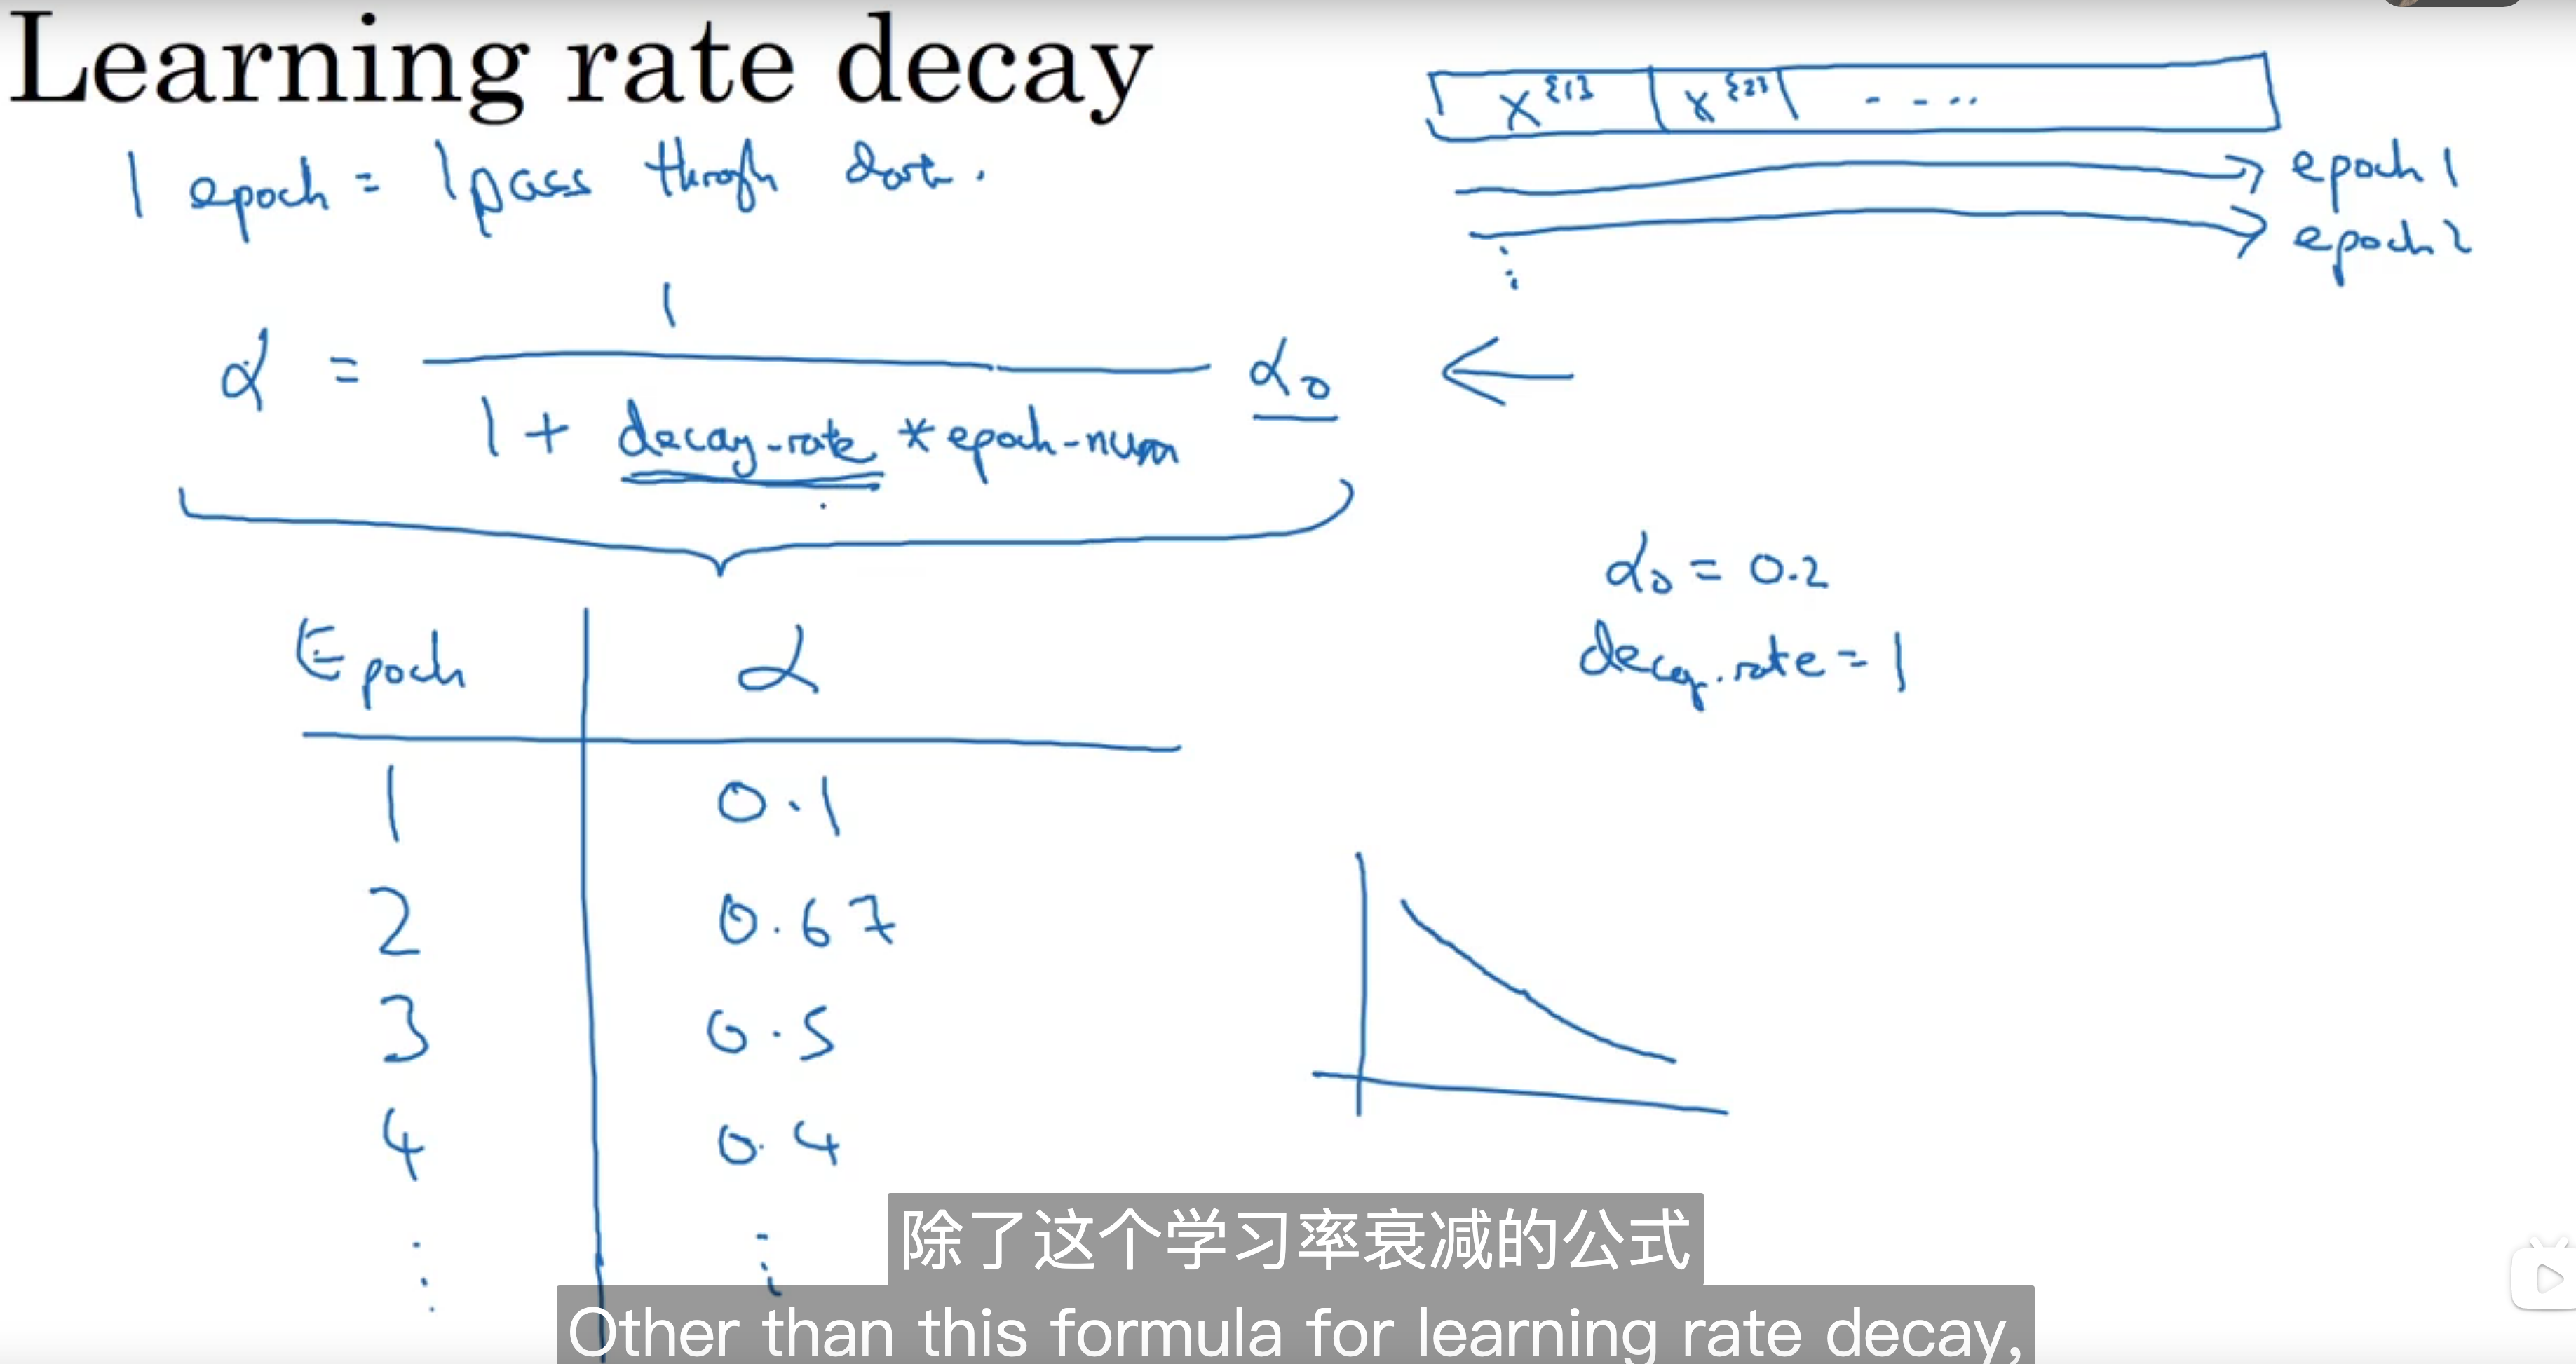 Learning rate decay
1 epoch = 1 pass through data.
X^{1} X^{2} ....
epoch 1
epoch 2
α = 1 / (1 + decay-rate * epoch-num) α₀ ←
α₀ = 0.2
decay-rate = 1
Epoch α
1 0.1
2 0.67
3 0.5
4 0.4
⋮ ⋮
除了这个学习率衰减的公式
Other than this formula for learning rate decay,